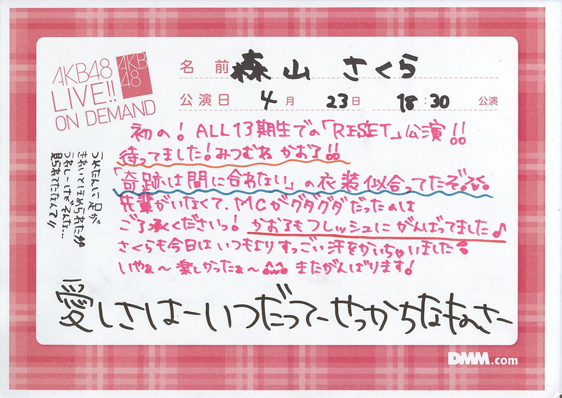 AKB48
LIVE!!
ON DEMAND
AKB
48
名前 森山 さくら
公演日 4月 23日 18:30 公演
初の! ALL13期生での「RESET」公演!!
待ってました!みつむね かおる!!
「奇跡は間に合わない」の衣装似合ってたぞ
先輩がいなくて、MCがグダグダだったのは
ご了承くださいっ! かおるもフレッシュにがんばってました♪
さくらも今日はいつもよりすっごい汗をかいちゃいました
いやぁ〜楽しかったぁ〜 またがんばります!
うれたんに足が
きれいとほめられたが
うれしーけどそんな…
見られてたなんて!!
愛しさはーいつだってーせっかちなねぇさー
DMM.com